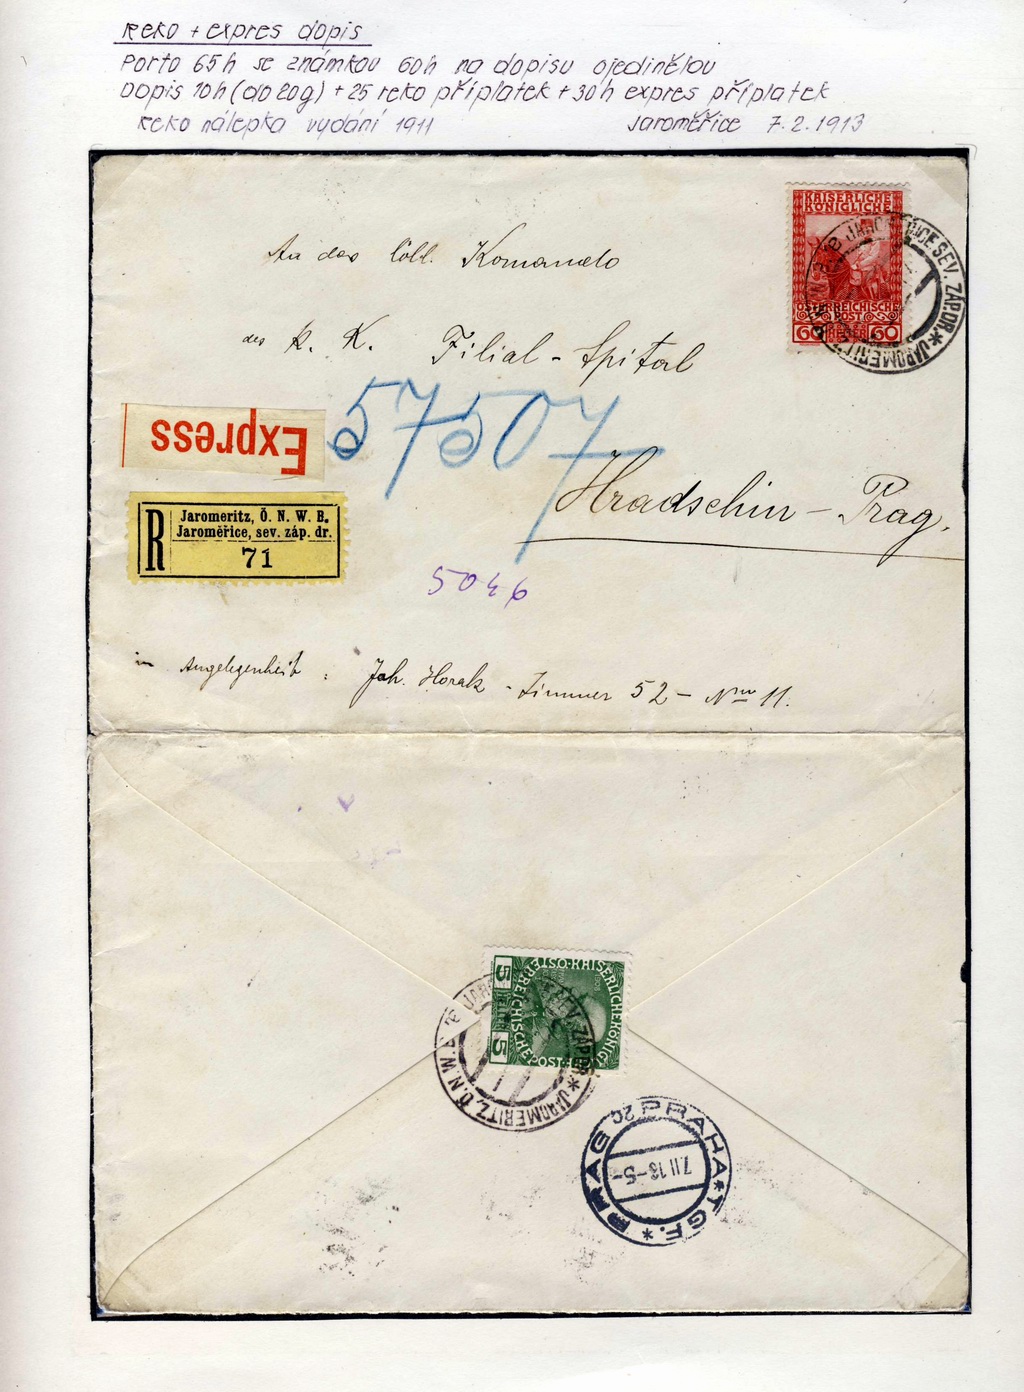 Reko + expres dopis
Porto 65h se známkou 60h na dopisu ojedinělou
Dopis 10h (do 20g) + 25 reko příplatek + 30h expres příplatek
Reko nálepka vydání 1911 Jaroměřice 7.2.1913
KAISERLICHE
KÖNIGLICHE
ÖSTERREICHISCHE
POST
60 HELLER 60
SEV. ZÁP. DR. * JAROMERITZ
An das löbl. Komando
des k. K. Filial - Spital
57507
Express
Hradschin - Prag.
R
Jaromeritz, Ö. N. W. B.
Jaroměřice, sev. záp. dr.
71
5046
in Angelegenheit : Joh. Horak - Zimmer 52 - Nro 11.
KAISERLICHE KÖNIGL
ERREICHISCHE POST
5 HELLER 5
ZÁP. DR. * JAROMERITZ, Ö. N. W. B.
PRAG 2c PRAHA * TGF. *
7.II.13-5-